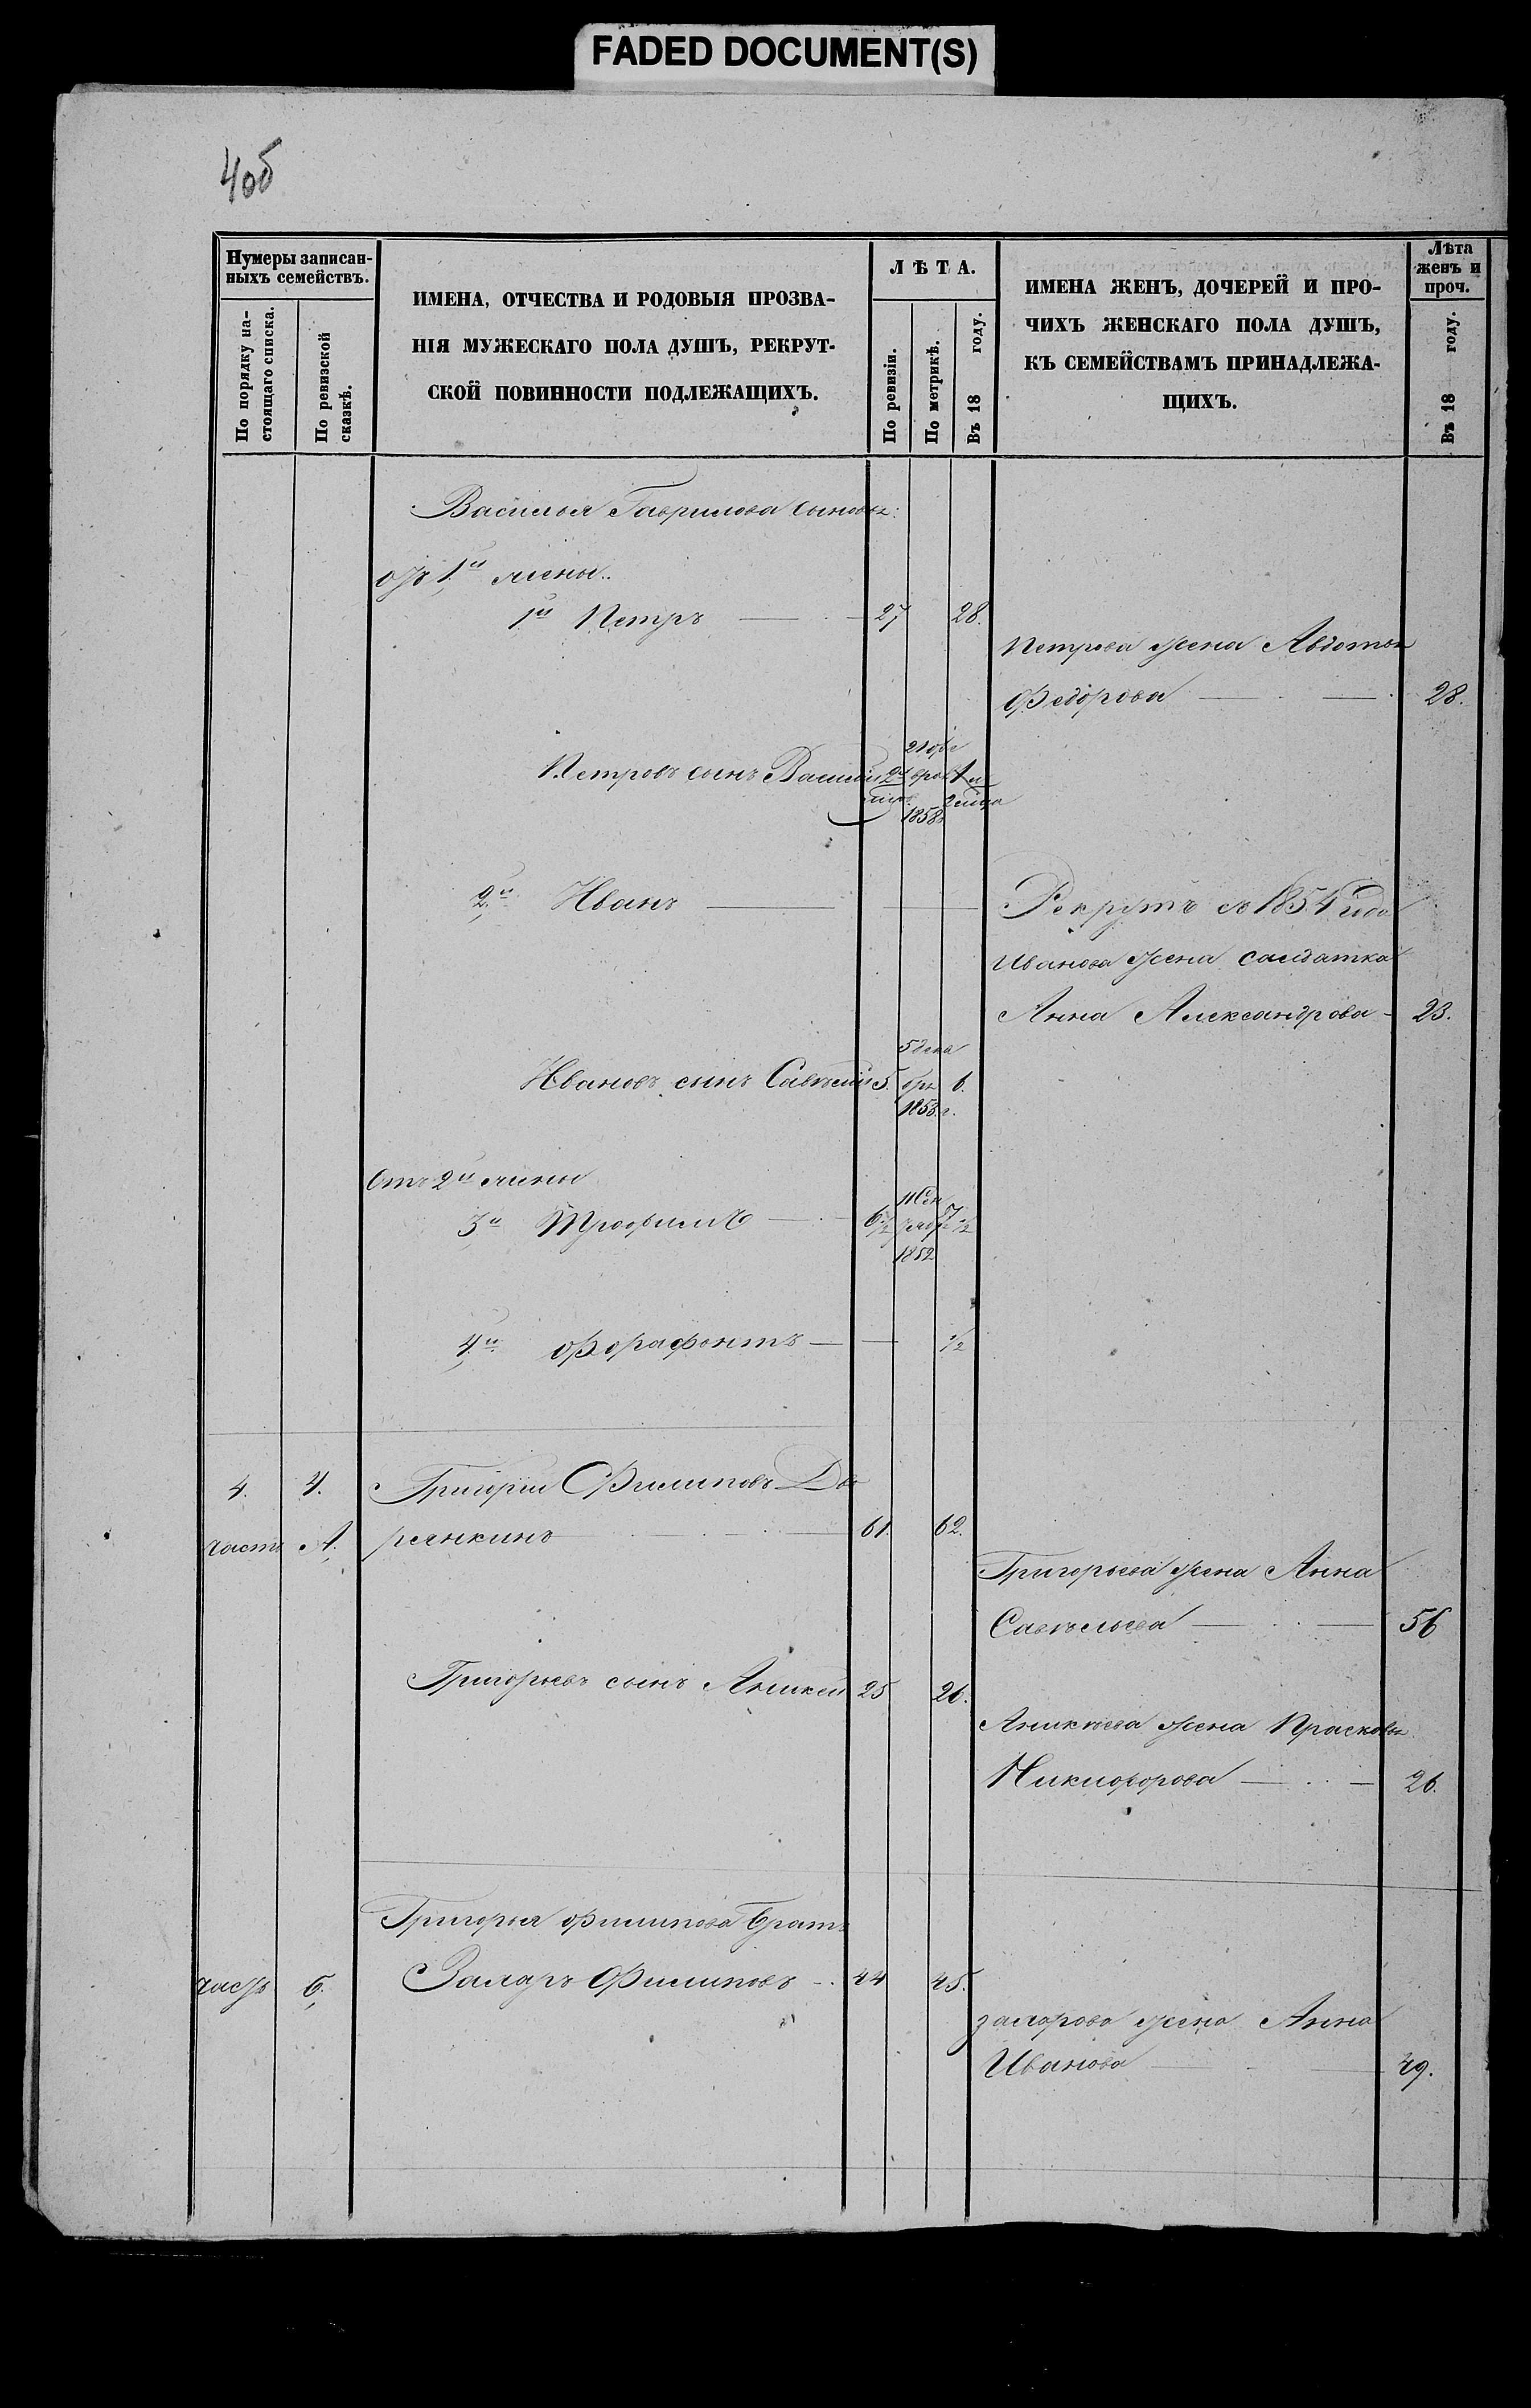 FADED DOCUMENT(S)
4об
Нумеры записан-
ныхъ семействъ.
По порядку на-
стоящаго списка.
По ревизской
сказкѣ.
ИМЕНА, ОТЧЕСТВА И РОДОВЫЯ ПРОЗВА-
НІЯ МУЖЕСКАГО ПОЛА ДУШЪ, РЕКРУТ-
СКОЙ ПОВИННОСТИ ПОДЛЕЖАЩИХЪ.
ЛѢТА.
По ревизіи.
По метрикѣ.
Въ 18 году.
ИМЕНА ЖЕНЪ, ДОЧЕРЕЙ И ПРО-
ЧИХЪ ЖЕНСКАГО ПОЛА ДУШЪ,
КЪ СЕМЕЙСТВАМЪ ПРИНАДЛЕЖА-
ЩИХЪ.
Лѣта
женъ и
проч.
Въ 18 году.
Василья Гаврилова сыновья:
отъ 1й жены..
1й Петръ 27 28.
Петрова жена Авдотья
Федорова 28.
21 фе
Петровъ сынъ Василій
1858
2й Иванъ
Рекрутъ съ 1854 года
Иванова жена салдатка
Анна Александрова 23.
5 дека
Ивановъ сынъ Савелій 5. бря 6.
1853 г.
отъ 2й жены
3й Трофимъ 6 1/2 7 1/2
1852
4й Ферафонтъ 1/2
4. 4. Григорій Филиповъ Дво
часть А. рянкинъ 61. 62.
Григорьева жена Анна
Савельева 56
Григорьевъ сынъ Аникей 25 26.
Аникѣева жена Прасковья
Никифорова 26.
Григорья Филипова братъ
часть Б. Захаръ Филиповъ 44 45.
Захарова жена Анна
Иванова 49.